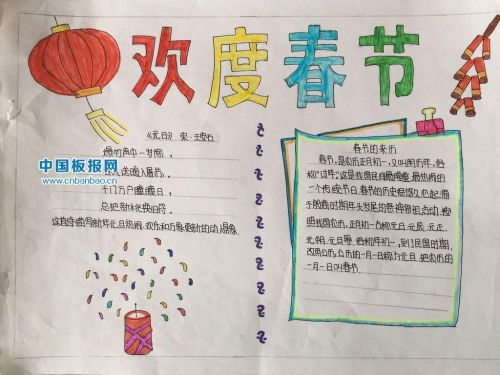 欢度春节
《元日》 宋·王安石
爆竹声中一岁除,
春风送暖入屠苏。
千门万户曈曈日,
总把新桃换旧符。
这首诗描写新年元旦热闹、欢乐和万象更新的动人景象。
中国板报网
www.cnbanbao.cn
春节的来历
春节,是农历正月初一,又叫阴历年,俗
称“过年”。这是我国民间最隆重、最热闹的
一个传统节日。春节的历史很悠久,它起源
于殷商时期年头岁尾的祭神祭祖活动。按
照我国农历,正月初一古称元日、元辰、元正、
元朔、元旦等,俗称年初一,到了民国时期,
改用公历,公历的一月一日称为元旦,把农历的
一月一日叫春节。